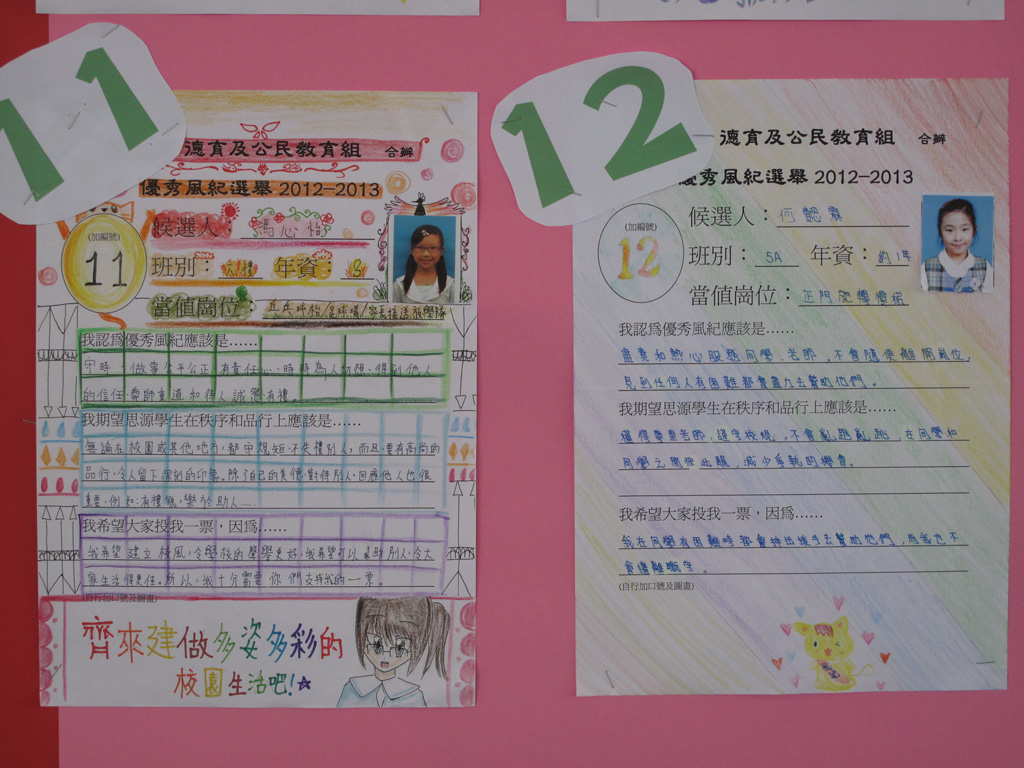 11
德育及公民教育組 合辦
優秀風紀選舉 2012-2013
(加編號)
11
候選人：馮心怡
班別： 年資：
當值崗位：乒乓球枱/足球場/
我認為優秀風紀應該是……
守時、做事公平公正、有責任心、時時為人切想、得到他人
的信任、尊師重道和待人誠懇有禮。
我期望思源學生在秩序和品行上應該是……
無論在校園或其他地方，都守規矩，不失禮別人，而且要有高尚的
品行，令人留下深刻的印象。除了自己的美德，對待別人，回應他人也很
重要，例如：有禮貌、樂於助人……
我希望大家投我一票，因為……
我希望建立校風，令學校的聲譽更好，我希望可以幫助別人，令大
家生活得更佳。所以，我十分需要你們支持我的一票。
(自行加口號及圖畫)
齊來建做多姿多彩的
校園生活吧！
12
德育及公民教育組 合辦
優秀風紀選舉 2012-2013
(加編號)
12
候選人：何懿霖
班別：5A 年資：約1年
當值崗位：正門
我認為優秀風紀應該是……
盡責和熱心服務同學、老師，不會隨便離開崗位，
見到任何人有困難都會盡力去幫助他們。
我期望思源學生在秩序和品行上應該是……
懂得尊重老師，謹守校規，不會亂跑亂跳，在同學和
同學之間彼此，減少爭執的機會。
我希望大家投我一票，因為……
我在同學有困難時都會伸出援手去幫助他們，而我也不
會擅離職守。
(自行加口號及圖畫)